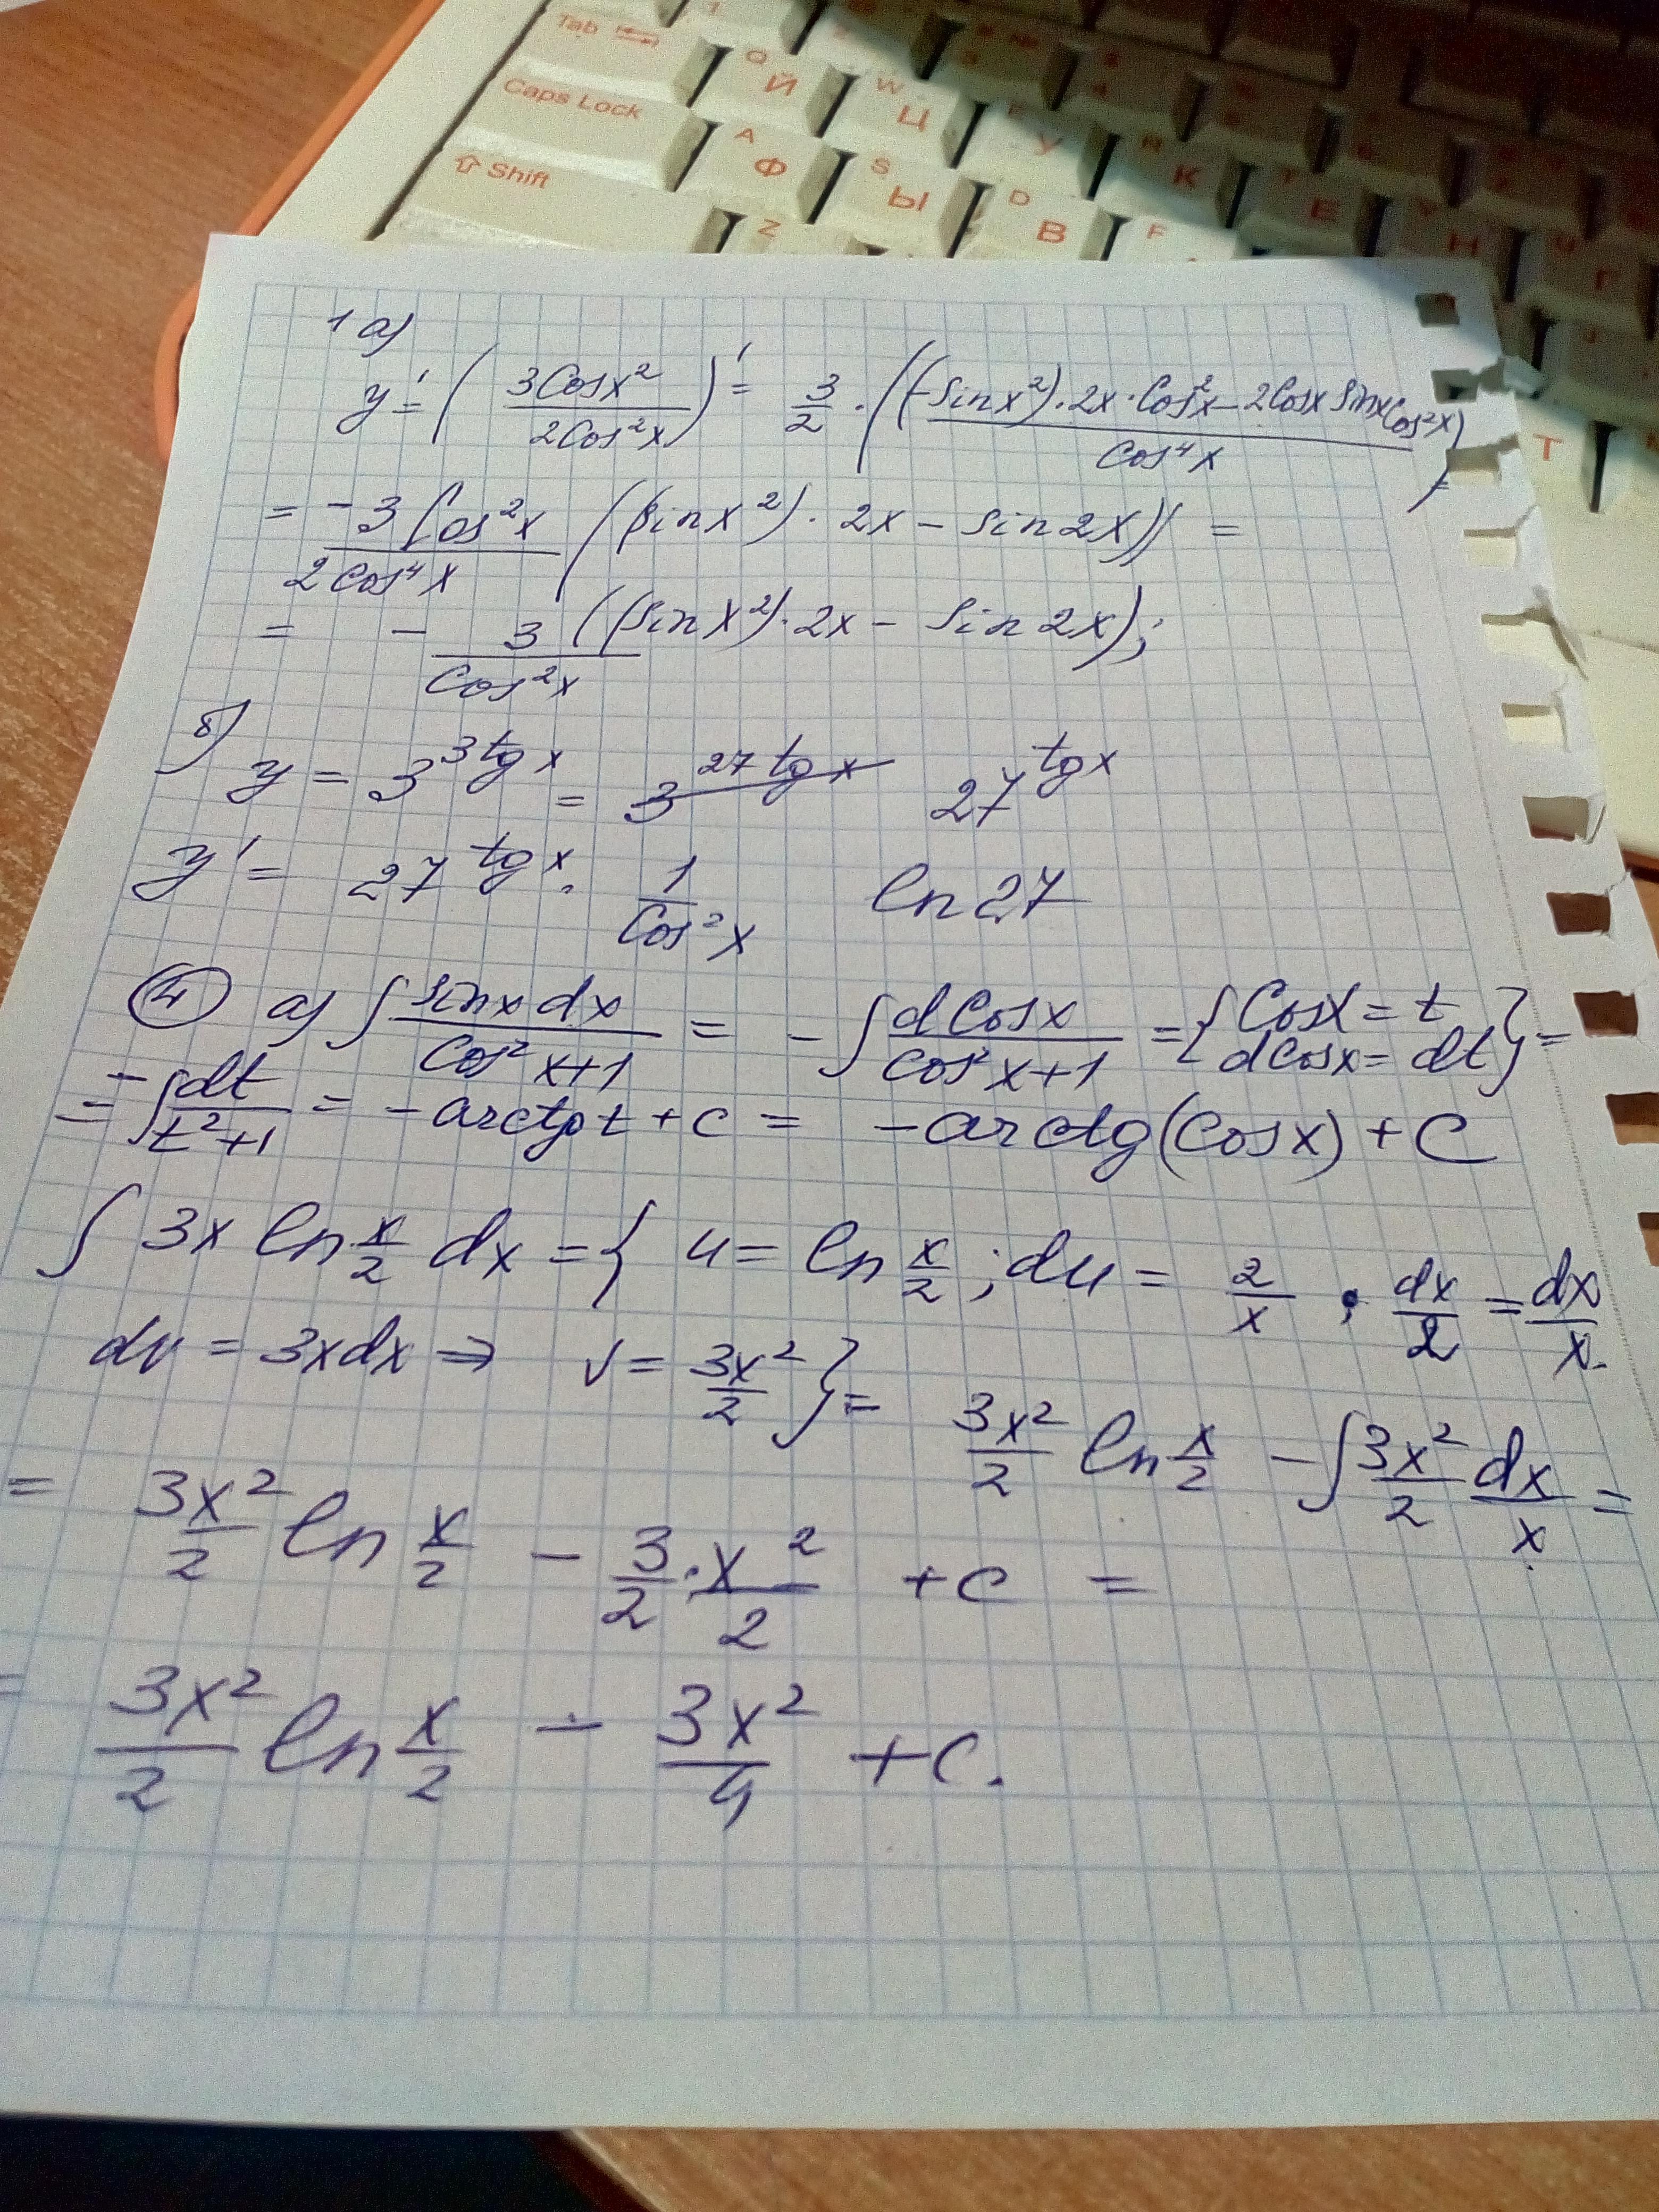 Tab
Caps Lock Q Й W Ц У К Е Н Г
Shift A Ф S Ы D В F
Z
Т
1 а)
y' = (3Cosx²/2Cos²x)' = 3/2 · ((-sinx²)·2x·Cos²x - 2Cosx sinx Cos²x)/Cos⁴x) =
= -3Cos²x/2Cos⁴x ((sinx²)·2x - sin2x)) =
= - 3/Cos²x ((sinx²)·2x - sin2x);
б)
y = 3^(3tgx) = 3^(27tgx) 27^(tgx)
y' = 27^(tgx) · 1/Cos²x ln27
④ а) ∫ sinxdx/Cos²x+1 = -∫ dCosx/cos²x+1 = {Cosx = t dCosx = dt} =
= -∫ dt/t²+1 = -arctgt + c = -arctg(cosx) + C
∫ 3x ln x/2 dx = { u = ln x/2 ; du = 2/x · dx/2 = dx/x.
dv = 3xdx ⇒ v = 3x²/2 } = 3x²/2 ln x/2 - ∫ 3x²/2 dx/x =
= 3x²/2 ln x/2 - 3/2 · x²/2 + c =
= 3x²/2 ln x/2 - 3x²/4 + c.